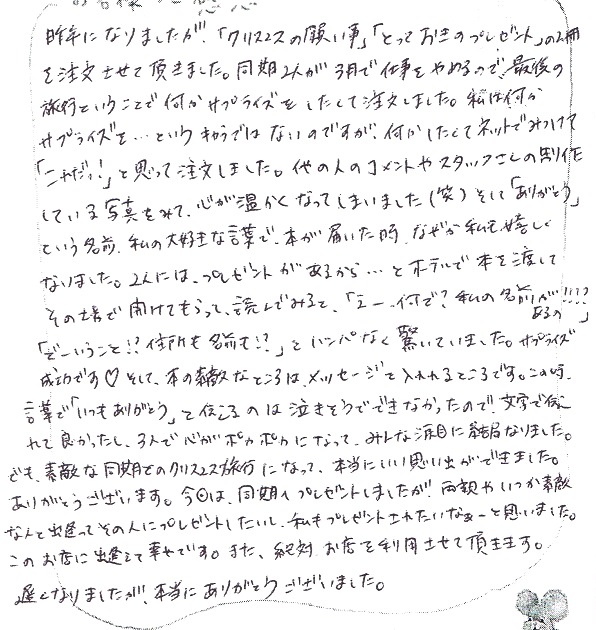 昨年になりましたが、「クリスマスの願い事」「とっておきのプレゼント」の2冊
を注文させて頂きました。同期2人が3月で仕事をやめるので、最後の
旅行ということで何かサプライズをしたくて注文しました。私は何か
サプライズを…というキャラではないのですが、何かしたくてネットでみつけて
「これだっ!」と思って注文しました。他の人のコメントやスタッフさんの制作
している写真をみて、心が温かくなってしまいました(笑)そして「ありがとう」
という名前、私の大好きな言葉で、本が届いた時、なぜか私も嬉しく
なりました。2人には、プレゼントがあるから…とホテルで本を渡して
その場で開けてもらって、読んでみると、「えー、何で?私の名前が!!??
あるの」
「どーいうこと!?住所も名前も!?」とハンパなく驚いていました。サプライズ
成功です♡そして、本の素敵なところは、メッセージを入れれるところです。この時、
言葉で「いつもありがとう」と伝えるのは泣きそうでできなかったので、文字で伝え
れて良かったし、3人で心がポカポカになって、みんな涙目に結局なりました。
でも、素敵な同期とのクリスマス旅行になって、本当にいい思い出ができました。
ありがとうございます。今回は、同期へプレゼントしましたが、両親やいつか素敵
なんと出逢ってその人にプレゼントしたいし、私もプレゼントされたいなぁーと思いました。
このお店に出逢えて幸せです。また、絶対お店を利用させて頂きます。
遅くなりましたが、本当にありがとうございました。